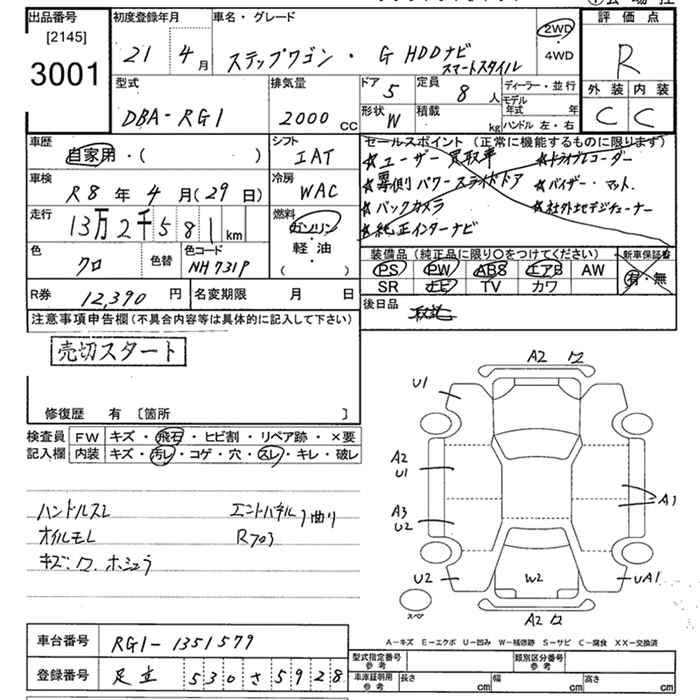 出品番号
[2145]
3001
初度登録年月
21 4月
車名・グレード
ステップワゴン・G HDDナビ
スマートスタイル
2WD
・
4WD
評価点
R
外装 内装
C C
型式
DBA-RG1
排気量
2000 CC
ドア
5
定員
8 人
形状
W
積載
kg
ディーラー・並行
モデル年式 年
ハンドル 左・右
車歴
自家用・( )
シフト
IAT
車検
R8年 4月(29日)
冷房
WAC
走行
13万2千581km
燃料
ガソリン
軽・油
( )
色
クロ
色替
色コード
NH731P
R券
12,390円
名変期限 月 日
セールスポイント(正常に機能するものに限ります)
☆ユーザー買取車 ☆ドライブレコーダー
☆両側パワースライドドア ☆バイザー・マット.
☆バックカメラ ☆社外地デジチューナー
☆純正インターナビ
装備品(純正品に限り○をつけてください)
PS PW ABS エアB AW
SR ナビ TV カワ
新車保証書
有・無
後日品
取説
注意事項申告欄(不具合内容等は具体的に記入して下さい)
売切スタート
修復歴 有 〔箇所 〕
検査員
記入欄
FW キズ・飛石・ヒビ割・リペア跡・×要
内装 キズ・汚レ・コゲ・穴・スレ・キレ・破レ
ハンドルスレ エンドパネル曲り
オイルモレ R703
キズ・ワ・ホシュラ
A2 ワ
U1
A2
U1
A3
U2
A1
U2
W2
UA1
A2 ワ
スペア
A-キズ E-エクボ U-凹み W-補修跡 S-サビ C-腐食 XX-交換済
車台番号
RG1-1351579
登録番号
足立 530さ5928
型式指定番号
参考
類別区分番号
参考
車庫証明用
参考
長さ cm
幅 cm
高さ cm